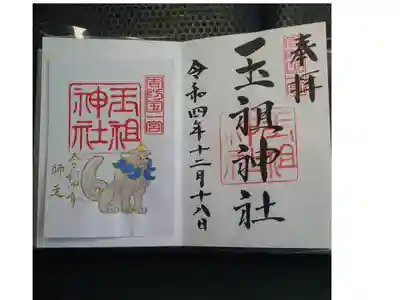 奉拝
玉祖神社
玉祖神社
令和四年十二月十八日
玉祖神社
師走